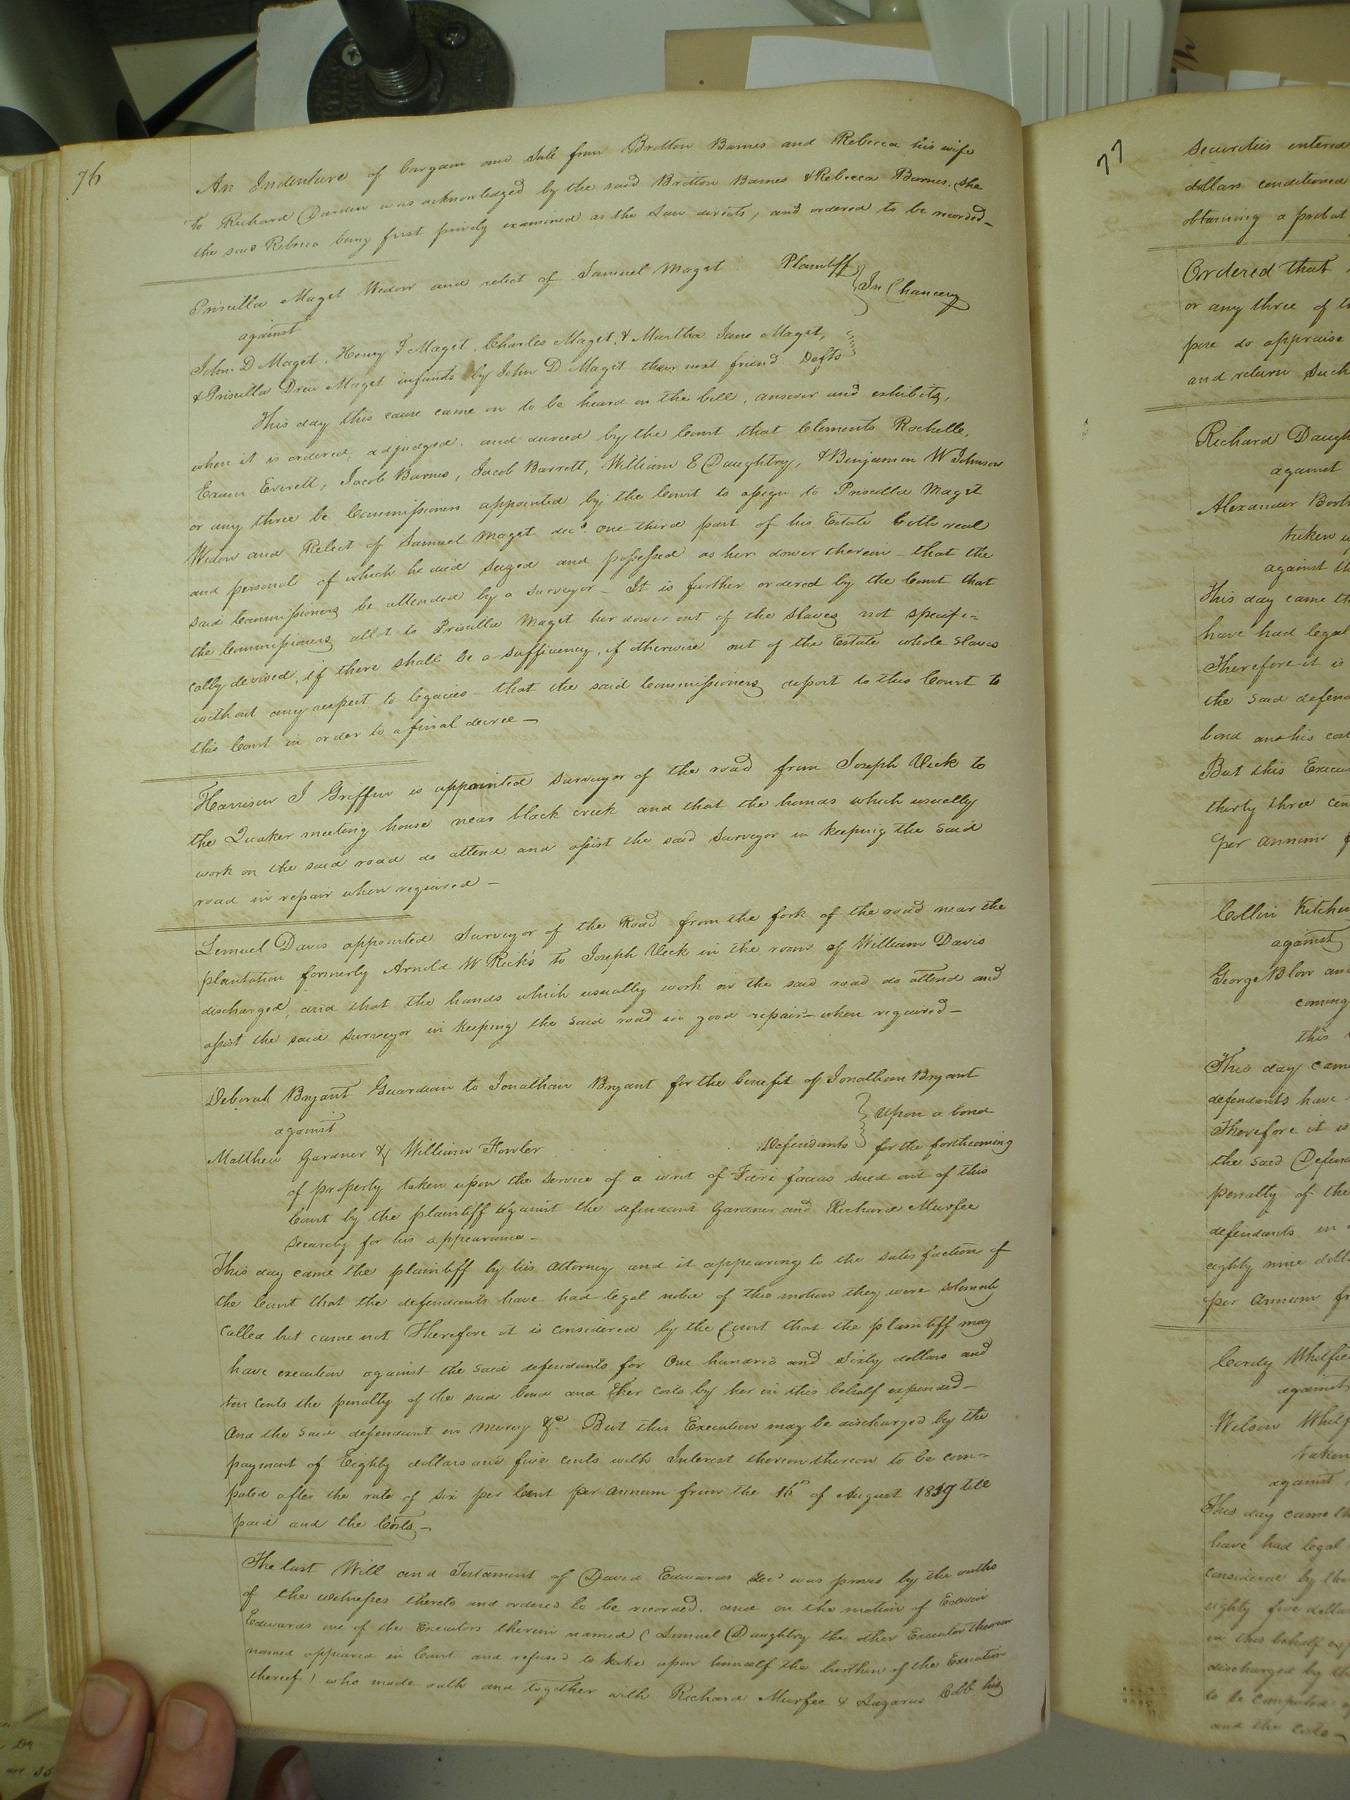 76
An Indenture of bargain and Sale from Britton Barnes and Rebecca his wife
to Richard Darden was acknowledged by the said Britton Barnes & Rebecca Barnes. She
the said Rebecca being first privily examined as the Law directs, and ordered to be recorded—
Priscilla Maget Widow and relict of Samuel Maget Plaintiff
In Chancery
against
John D Maget, Henry F Maget, Charles Maget, & Martha Jane Maget,
& Priscilla Drew Maget infants by John D Maget their next friend Defts
This day this cause came on to be heard on the bill, answer and exhibits,
when it is ordered, adjudged, and decreed by the Court that Clements Rochelle,
Exum Everett, Jacob Barnes, Jacob Barrett, William E Daughtry, & Benjamin W Johnson
or any three be Commissioners appointed by the Court to assign to Priscilla Maget
Widow and Relict of Samuel Maget decd. one third part of his Estate both real
and personal of which he died seized and possessed as her dower therein— that the
said Commissioners be attended by a surveyor— It is further ordered by the Court that
the Commissioners allot to Priscilla Maget her dower out of the slaves not specifi=
cally devised, if there shall be a sufficiency, if otherwise out of the Estate whole slaves
without any respect to legacies— that the said Commissioners report to this Court to
this Court in order to a final decree—
Harrison J Griffin is appointed surveyor of the road from Joseph Vick to
the Quaker meeting house near black creek and that the hands which usually
work on the said road do attend and assist the said surveyor in keeping the said
road in repair when required—
Lemuel Davis appointed Surveyor of the Road from the fork of the road near the
plantation formerly Arnold W Ricks to Joseph Vick in the room of William Davis
discharged, and that the hands which usually work on the said road do attend and
assist the said surveyor in keeping the said road in good repair— when required—
Deborah Bryant Guardian to Jonathan Bryant for the benefit of Jonathan Bryant
against
upon a bond
Matthew Gardner & William Fowler Defendants for the forthcoming
of property taken upon the service of a writ of Fieri facias sued out of this
Court by the plaintiff against the defendant Gardner and Richard Murfee
security for his appearance—
This day came the plaintiff by his attorney and it appearing to the satisfaction of
the Court that the defendants have had legal notice of this motion they were solemnly
called but came not Therefore it is considered by the Court that the plaintiff may
have execution against the said defendants for One hundred and sixty dollars and
ten cents the penalty of the said bond and her costs by her in this behalf expended—
And the said defendant in Mercy &c. But this Execution may be discharged by the
payment of Eighty dollars and five cents with Interest thereon thereon to be com=
puted after the rate of six per Cent per annum from the 16th of August 1839 till
paid and the Costs—
The last Will and Testament of David Edwards decd was proved by the oaths
of the witnesses thereto and ordered to be recorded, and on the motion of Edwin
Edwards one of the Executors therein named (Lemuel Daughtry the other Executor therein
named appeared in Court and refused to take upon himself the burthen of the Execution
thereof) who made oath and together with Richard Murfee & Lazarus Cobb his
77
Securities entered
dollars conditioned
obtaining a probat
Ordered that
or any three of
pose do appraise
and return such
Richard Daugh
against
Alexander
taken
against th
This day came th
have had legal
Therefore it is
the said defen
bond and his cos
But this Execu
thirty three cen
per annum
Collin Kitchen
against
George Blow an
coming
this
This day came
defendants have
Therefore it is
the said Defen
penalty of the
defendants in
eighty nine doll
per annum fr
Whitfie
against
Wilson Whitf
taken
against
This day came th
have had legal
considered by the
eighty five dollars
in this behalf ex
discharged by th
to be computed
and the costs—